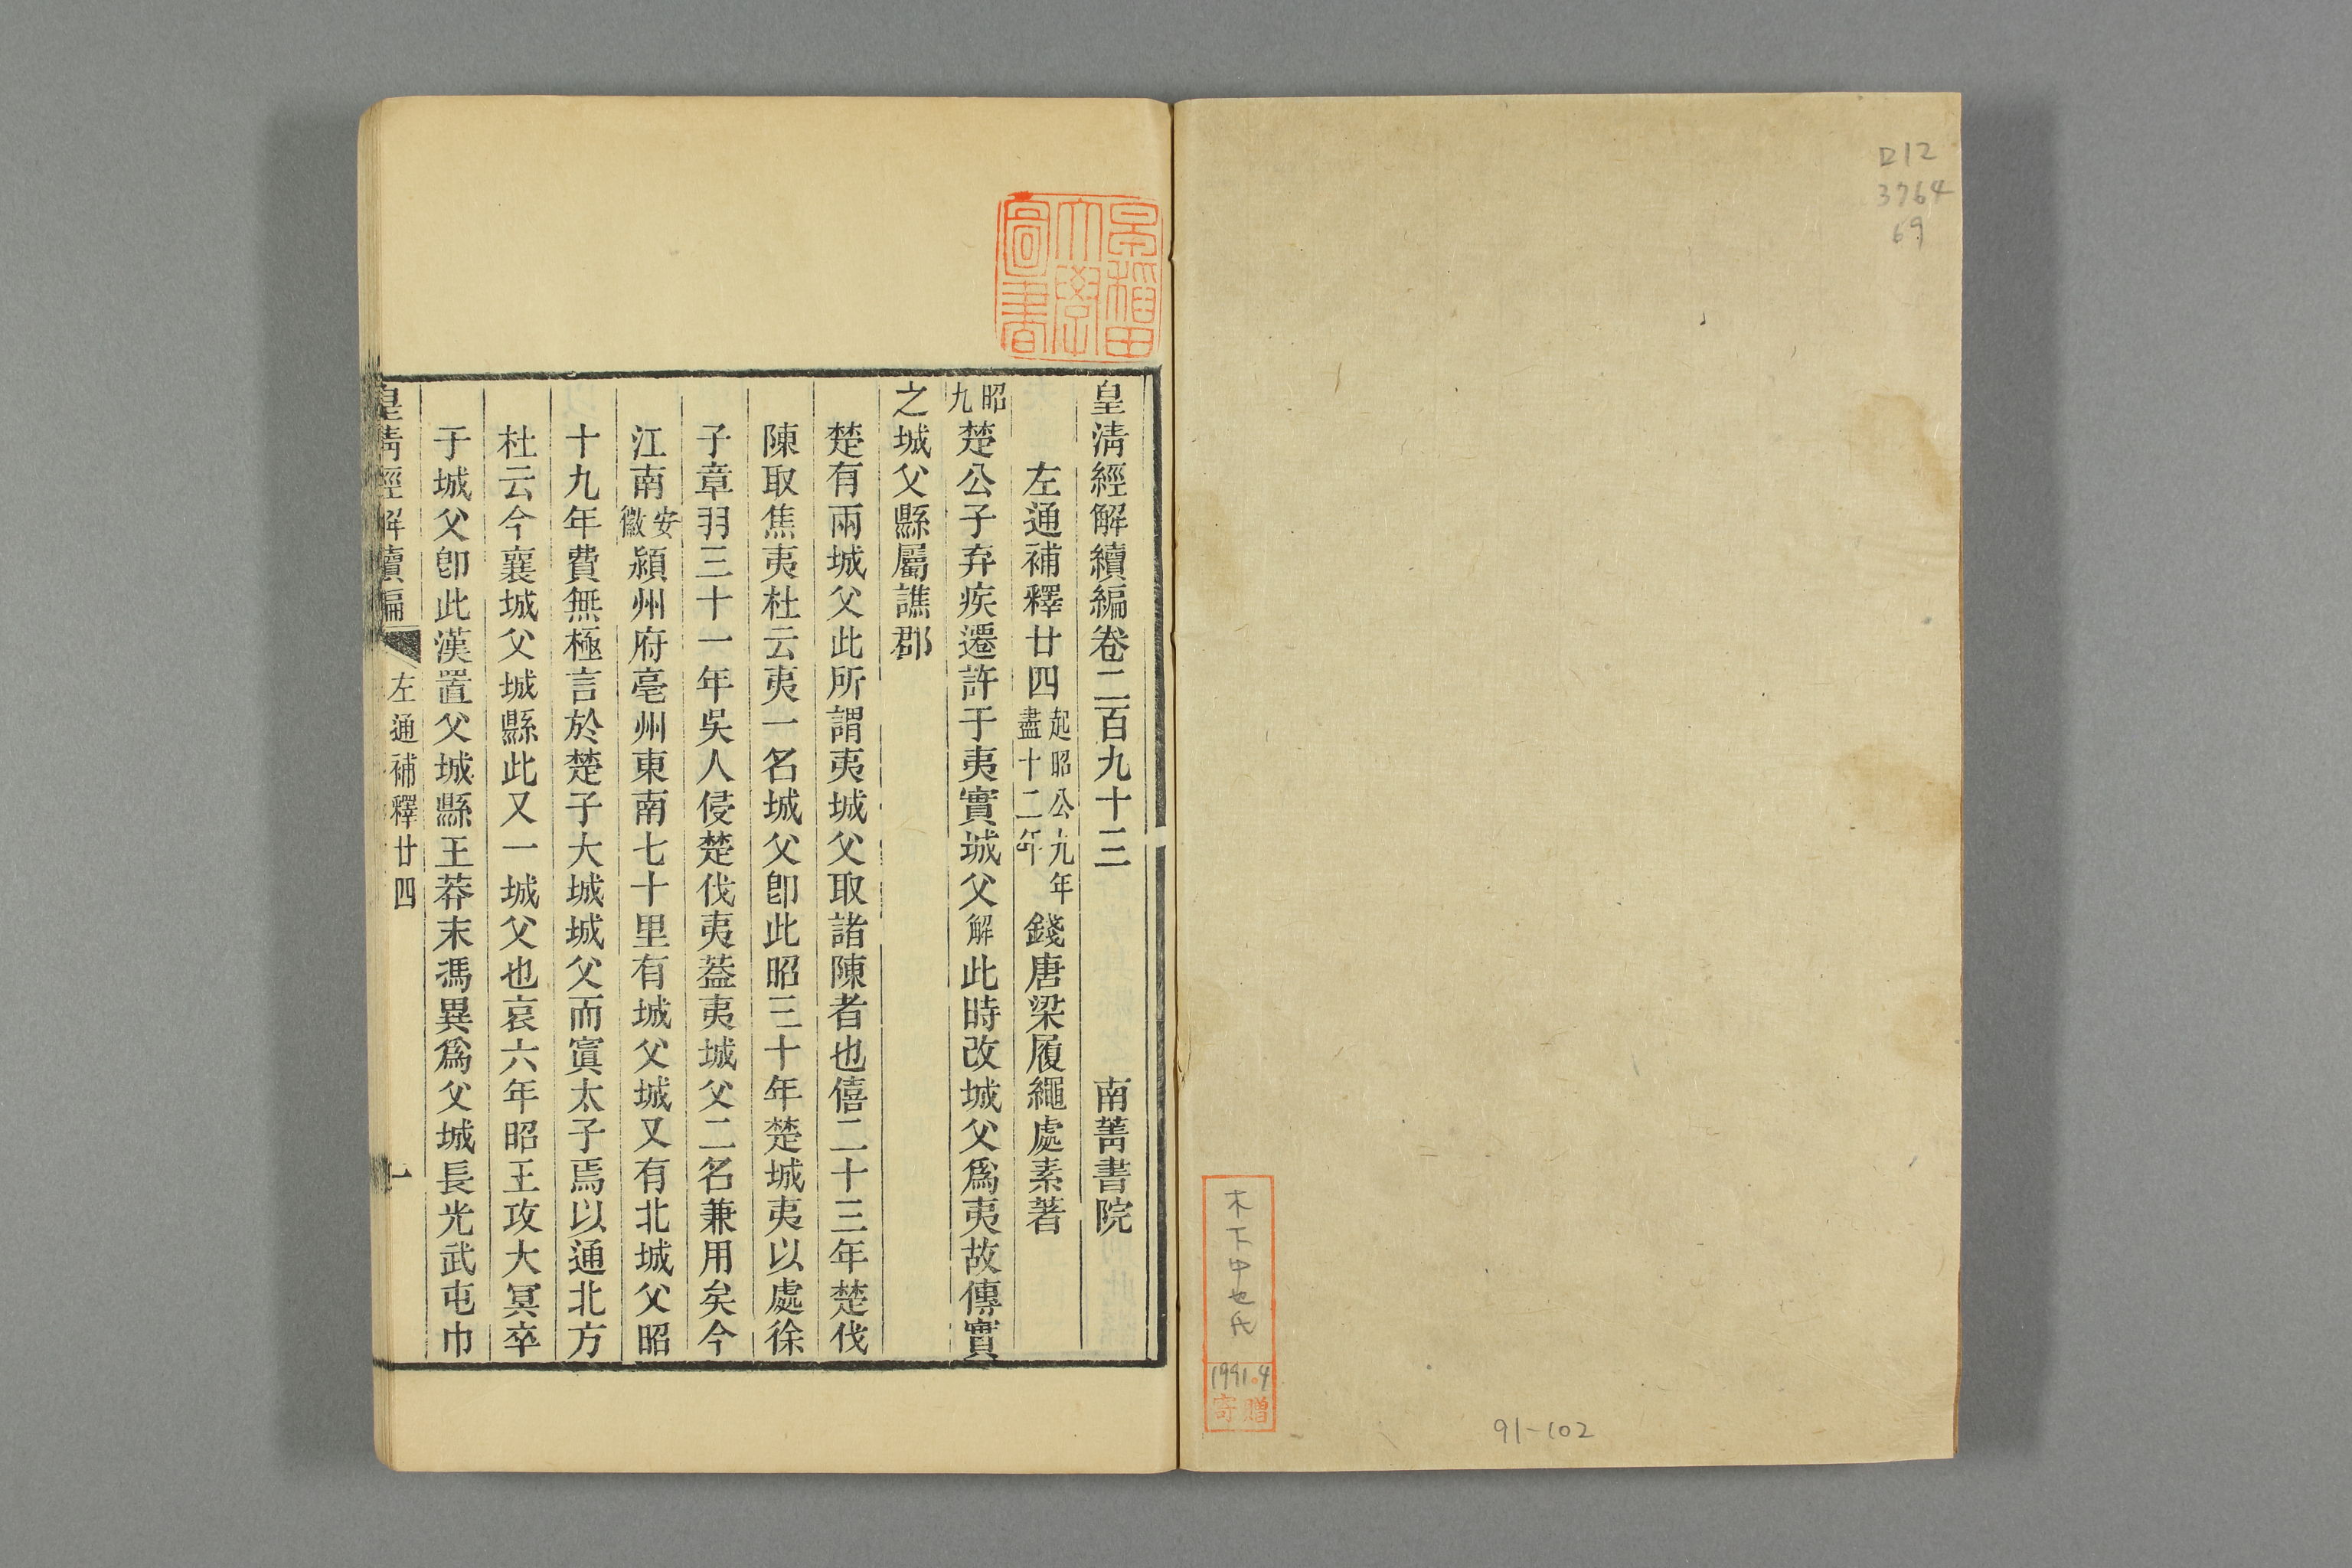 ロ12
3764
69
木下中也氏
1991.4
寄贈
91-102
早稲田大學圖書
皇清經解續編卷二百九十三 南菁書院
左通補釋廿四 起昭公九年盡十二年 錢唐梁履繩處素著
昭九 楚公子弃疾遷許于夷實城父 解 此時改城父爲夷故傳實
之城父縣屬譙郡
楚有兩城父此所謂夷城父取諸陳者也僖二十三年楚伐
陳取焦夷杜云夷一名城父卽此昭三十年楚城夷以處徐
子章羽三十一年吳人侵楚伐夷葢夷城父二名兼用矣今
江南 安徽 潁州府亳州東南七十里有城父城又有北城父昭
十九年費無極言於楚子大城城父而寘太子焉以通北方
杜云今襄城父城縣此又一城父也哀六年昭王攻大冥卒
于城父卽此漢置父城縣王莽末馮異爲父城長光武屯巾
皇清經解續編 左通補釋廿四 一